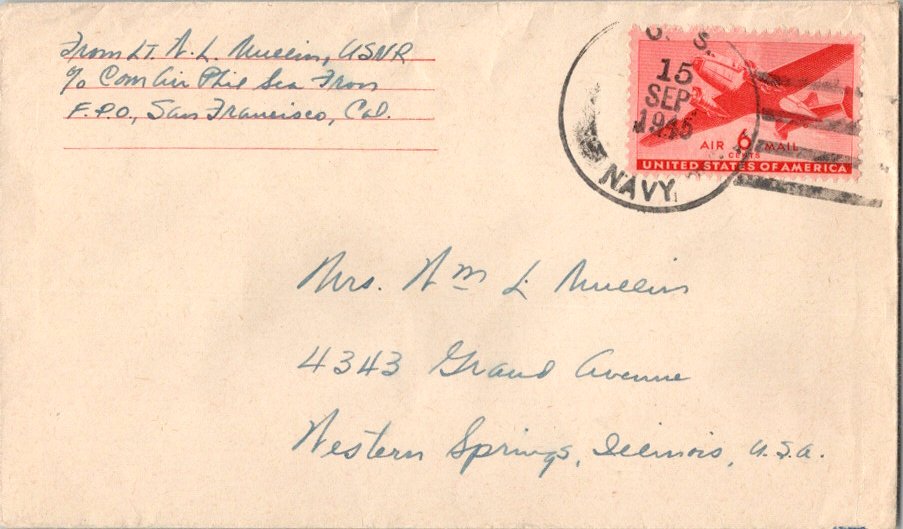 From Lt. W. L. Mullin, USNR
c/o Com Air Phil Sea Fron
F.P.O, San Francisco, Cal.
U. S.
15
SEP
1945
NAVY
AIR 6 MAIL
CENTS
UNITED STATES OF AMERICA
Mrs. Wm L. Mullin
4343 Grand Avenue
Western Springs, Illinois, U.S.A.